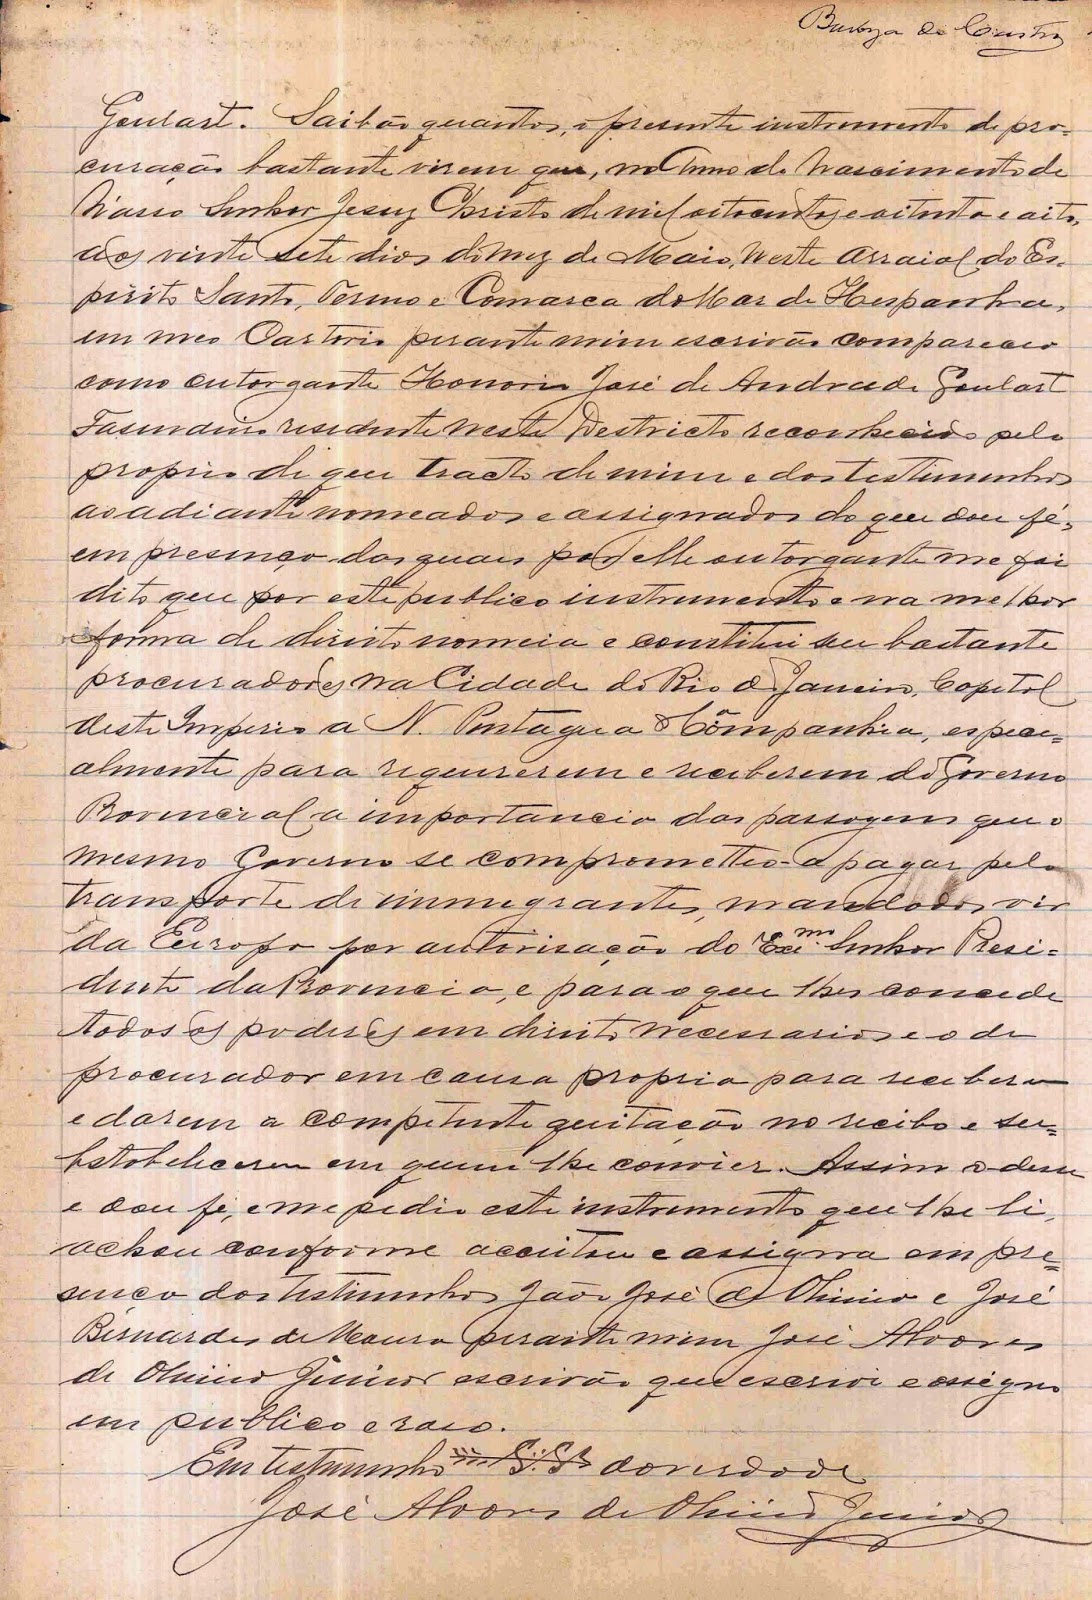 Barboza de Castro
Goulart. Saibão quantos, o presente instrumento de pro-
curação bastante virem que, no Anno do Nascimento de
Nosso Senhor Jesuz Christo de mil oitocentos e oitenta e oito,
aos vinte sete dias do mez de Maio, neste Arraial do Es-
pirito Santo, Termo e Comarca do Mar de Hespanha,
em meo Cartorio perante mim escrivão compareceo
como outorgante Honorio José de Andrade Goulart
Fasendeiro residente neste Destricto reconhecido pelo
proprio de que tracto de mim e das testimunhas
ao adiante nomeados e assignados do que dou fé,
em presença das quais por elle outorgante me foi
dito que por este publico instrumento e na melhor
forma de direito nomeia e constitui seu bastante
procuradores na Cidade do Rio de Janeiro, Capital
deste Imperio a N. Pentagna & Companhia, especi-
almente para requererem e receberem do Governo
Provencial a importancia das passagens que o
mesmo Governo se comprometteo a pagar pelo
transporte de immegrantes, mandados vir
da Europa por autorisação do Exm.º Senhor Presi-
dente da Provencia, e para o que lhes concede
todos os poderes em direito necessarios e o de
procurador em causa propria para receberem
e darem a competente quitação no recibo e su-
bstabelecerem em quem lhe convier. Assim o disse
e dou fé, e me pedio este instrumento que lhe li,
achou conforme aceitou e assigna em pre-
sença das testimunhas João José de Oliveira e José
Bernardes de Moura perante mim José Alvares
de Oliveira Junior escrivão que escrevi e assigno
em publico e raso.
Em testimunho da verdade
José Alvares de Oliveira Junior